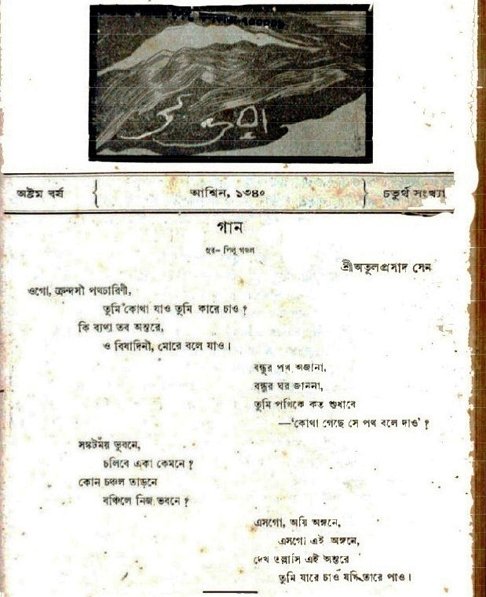 উত্তরা
অষ্টম বর্ষ
আশ্বিন, ১৩৪০
চতুর্থ সংখ্যা
গান
সুর– পিলু গজল
শ্রীঅতুলপ্রসাদ সেন
ওগো, ক্রন্দসী পথচারিণী,
তুমি কোথা যাও তুমি কারে চাও ?
কি ব্যথা তব অন্তরে,
ও বিষাদিনী, মোরে বলে যাও।
বন্ধুর পথ অজানা,
বন্ধুর ঘর জাননা,
তুমি পথিকে কত শুধাবে
—‘কোথা গেছে সে পথ বলে দাও’ ?
সঙ্কটময় ভুবনে,
চলিবে একা কেমনে ?
কোন চঞ্চল তাড়নে
বঞ্চিলে নিজ ভবনে ?
এসগো, অয়ি অঙ্গনে,
এসগো এই অঙ্গনে,
দেখ তল্লাসি এই অন্তরে
তুমি যারে চাও যদি তারে পাও।